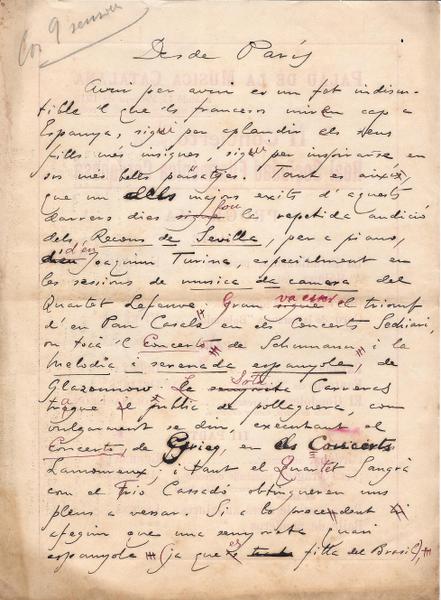 Cos 9
Desde París
Avuy per avuy es un fet indiscu-
tible 'l que els francesos miren cap a
Espanya, sigui per aplaudir als seus
fills més insignes, sigui per inspirarse en
sos més bells paisatges. Tant es aixís
que un dels majors exits d'aquests
darrers dies fou la repetida audició
dels Recons de Sevilla, per a piano,
d'en Joaquim Turina, especialment en
les sessions de musica da camera del
Quartet Lefeuve. Gran va esser el triomf
d'en Pau Casals en els Concerts Sechiari,
on tocà 'l Concert de Schumann i la
Melodia i serenada espanyola, de
Glazounow. La Carreras
tragué al públic de pollaguera, com
vulgarment se diu, executant el
Concert, de Grieg, en els Concerts
Lamoureux; i tant el Quartet Sangrà
com el Trio Cassadó obtingueren uns
plens a vessar. Si a lo precedent hi
afegim que una senyoreta quasi
espanyola (ja que es filla del Brasil),